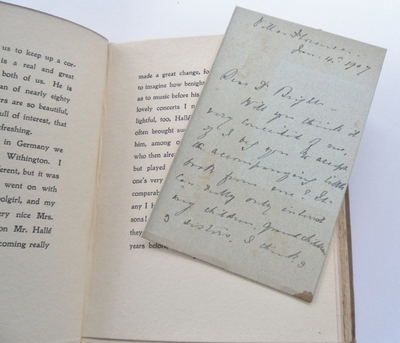 us to keep up a cor-
is a real and great
both of us. He is
an of nearly eighty
ers are so beautiful,
ull of interest, that
freshing.
in Germany we
Withington. I
ferent, but it was
went on with
oolgirl, and my
ery nice Mrs.
on Mr. Hallé
coming really
made a great change, fo
to imagine how benigh
as to music before his
lovely concerts I n
lightful, too, Hallé
often brought au
him, among o
who then alre
but played
one's very
comparab
any I h
sonal
they
years befor
Jan. 4th 1907
Dear Dr Bright
Will you think it
very conceited of me,
if I ask you to accept
the accompanying little
book from me. I
can really only interest
my children, grandchildren
& sisters, I think,